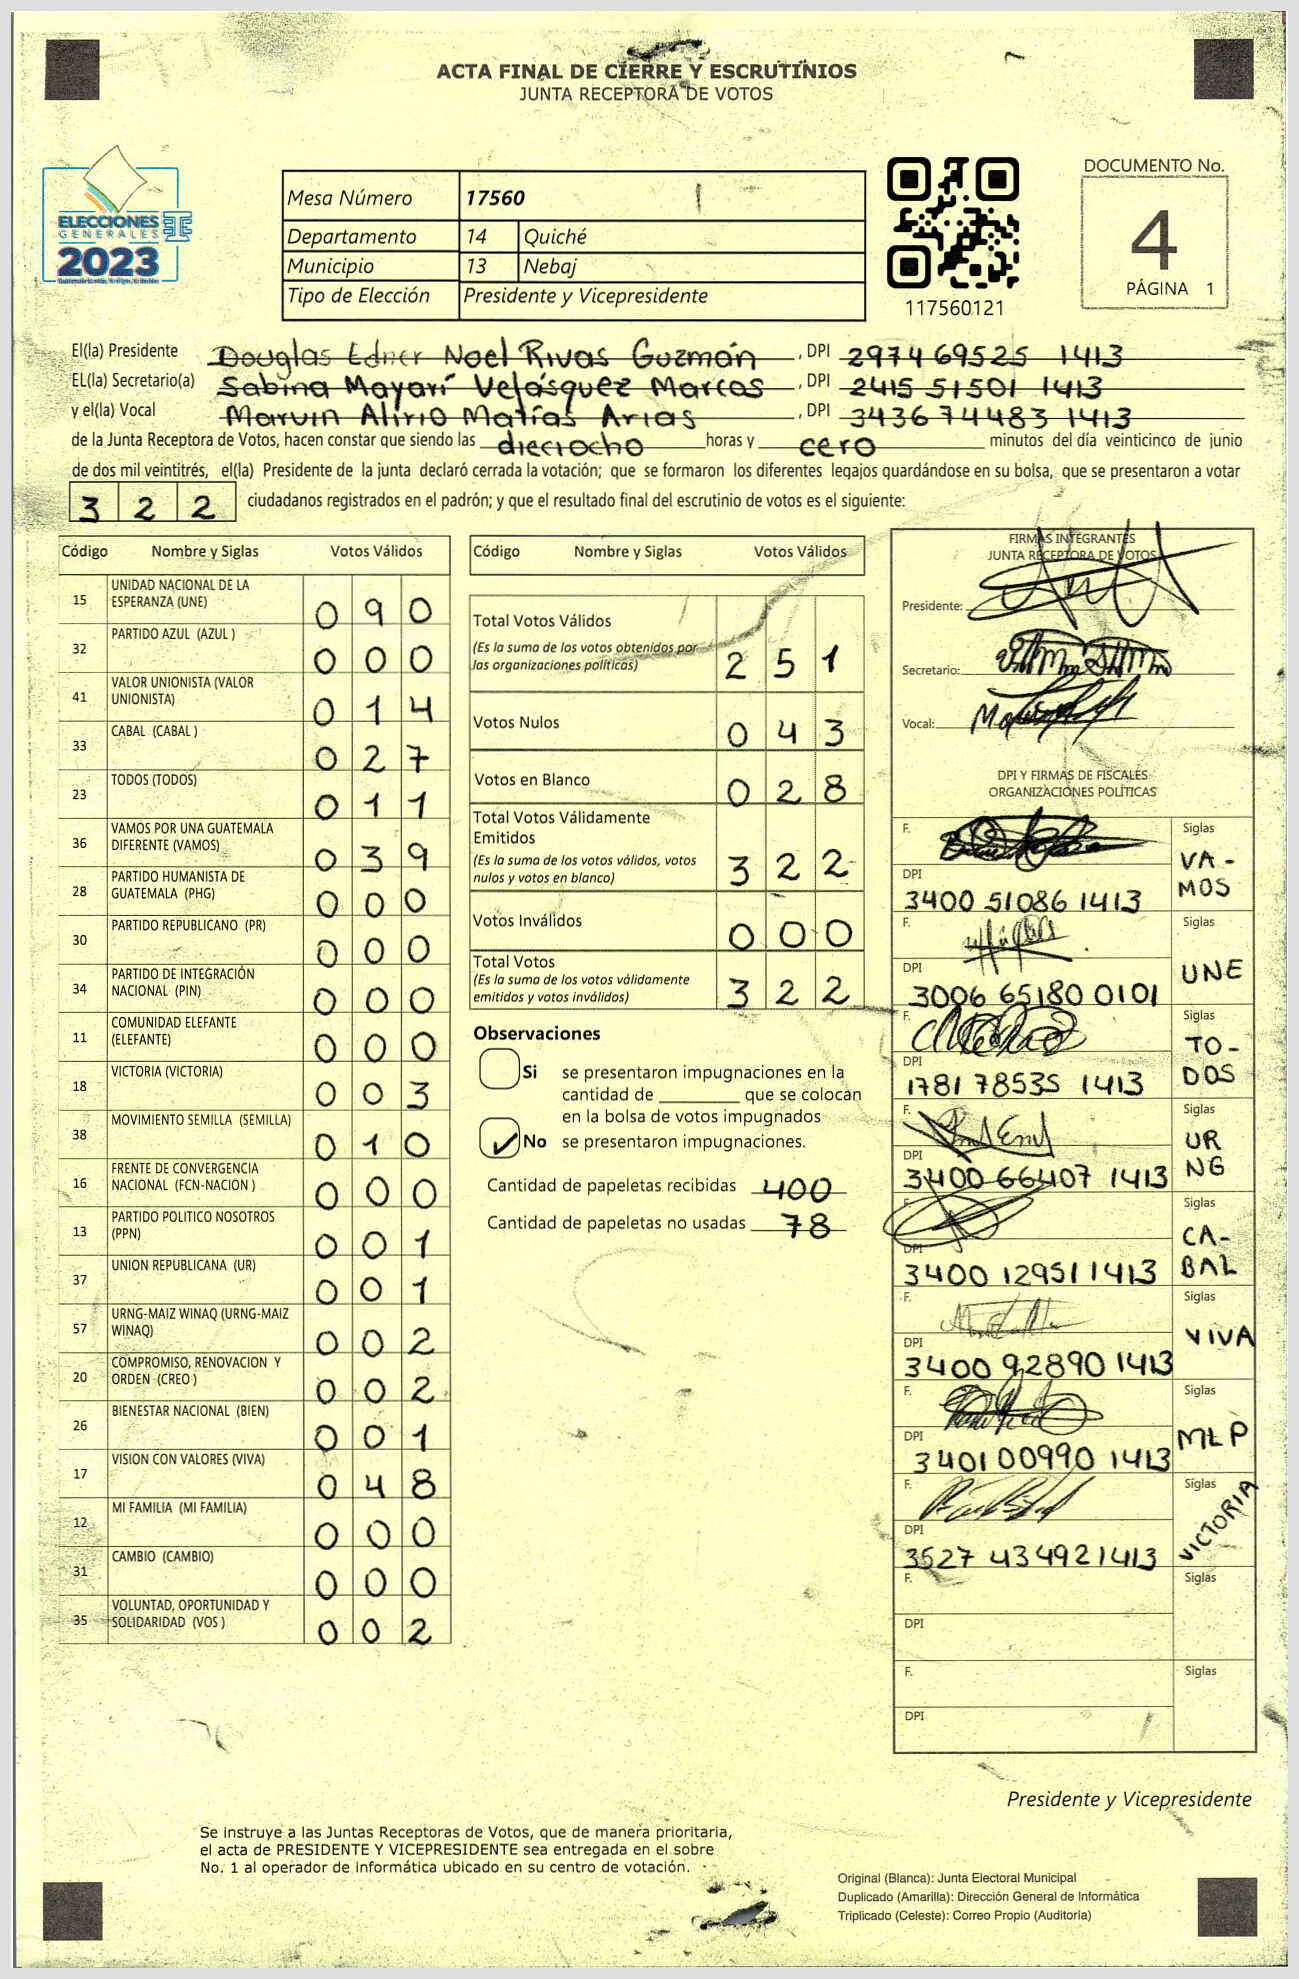 ACTA FINAL DE CIERRE Y ESCRUTINIOS
JUNTA RECEPTORA DE VOTOS
ELECCIONES
GENERALES
2023
Mesa Número 17560
Departamento 14 Quiché
Municipio 13 Nebaj
Tipo de Elección Presidente y Vicepresidente
117560121
DOCUMENTO No.
4
PÁGINA 1
El(la) Presidente Douglas Edner Noel Rivas Guzmán, DPI 2974 69525 1413
EL(la) Secretario(a) Sabina Mayarí Velásquez Marcos, DPI 2415 51501 1413
y el(la) Vocal Marvin Alirio Matías Arias, DPI 3436 74483 1413
de la Junta Receptora de Votos, hacen constar que siendo las dieciocho horas y cero minutos del día veinticinco de junio
de dos mil veintitrés, el(la) Presidente de la junta declaró cerrada la votación; que se formaron los diferentes legajos guardándose en su bolsa, que se presentaron a votar
3 2 2 ciudadanos registrados en el padrón; y que el resultado final del escrutinio de votos es el siguiente:
Código Nombre y Siglas Votos Válidos
15 UNIDAD NACIONAL DE LA
ESPERANZA (UNE) 0 9 0
32 PARTIDO AZUL (AZUL ) 0 0 0
41 VALOR UNIONISTA (VALOR
UNIONISTA) 0 1 4
33 CABAL (CABAL ) 0 2 7
23 TODOS (TODOS) 0 1 1
36 VAMOS POR UNA GUATEMALA
DIFERENTE (VAMOS) 0 3 9
28 PARTIDO HUMANISTA DE
GUATEMALA (PHG) 0 0 0
30 PARTIDO REPUBLICANO (PR) 0 0 0
34 PARTIDO DE INTEGRACIÓN
NACIONAL (PIN) 0 0 0
11 COMUNIDAD ELEFANTE
(ELEFANTE) 0 0 0
18 VICTORIA (VICTORIA) 0 0 3
38 MOVIMIENTO SEMILLA (SEMILLA) 0 1 0
16 FRENTE DE CONVERGENCIA
NACIONAL (FCN-NACION ) 0 0 0
13 PARTIDO POLITICO NOSOTROS
(PPN) 0 0 1
37 UNION REPUBLICANA (UR) 0 0 1
57 URNG-MAIZ WINAQ (URNG-MAIZ
WINAQ) 0 0 2
20 COMPROMISO, RENOVACION Y
ORDEN (CREO ) 0 0 2
26 BIENESTAR NACIONAL (BIEN) 0 0 1
17 VISION CON VALORES (VIVA) 0 4 8
12 MI FAMILIA (MI FAMILIA) 0 0 0
31 CAMBIO (CAMBIO) 0 0 0
35 VOLUNTAD, OPORTUNIDAD Y
SOLIDARIDAD (VOS ) 0 0 2
Código Nombre y Siglas Votos Válidos
Total Votos Válidos
(Es la suma de los votos obtenidos por
las organizaciones políticas) 2 5 1
Votos Nulos 0 4 3
Votos en Blanco 0 2 8
Total Votos Válidamente
Emitidos
(Es la suma de los votos válidos, votos
nulos y votos en blanco) 3 2 2
Votos Inválidos 0 0 0
Total Votos
(Es la suma de los votos válidamente
emitidos y votos inválidos) 3 2 2
Observaciones
Si se presentaron impugnaciones en la
cantidad de ________ que se colocan
en la bolsa de votos impugnados
✓ No se presentaron impugnaciones.
Cantidad de papeletas recibidas 400
Cantidad de papeletas no usadas 78
FIRMAS INTEGRANTES
JUNTA RECEPTORA DE VOTOS
Presidente:
Secretario:
Vocal:
DPI Y FIRMAS DE FISCALES
ORGANIZACIONES POLÍTICAS
F. Siglas
VA-
MOS
DPI
3400 51086 1413
F. Siglas
UNE
DPI
3006 65180 0101
F. Siglas
TO-
DOS
DPI
1781 78535 1413
F. Siglas
UR
NG
DPI
3400 66407 1413
F. Siglas
CA-
BAL
DPI
3400 12951 1413
F. Siglas
VIVA
DPI
3400 92890 1413
F. Siglas
MLP
DPI
3401 00990 1413
F. Siglas
VICTORIA
DPI
3527 43492 1413
F. Siglas
DPI
F. Siglas
DPI
Presidente y Vicepresidente
Se instruye a las Juntas Receptoras de Votos, que de manera prioritaria,
el acta de PRESIDENTE Y VICEPRESIDENTE sea entregada en el sobre
No. 1 al operador de informática ubicado en su centro de votación.
Original (Blanca): Junta Electoral Municipal
Duplicado (Amarilla): Dirección General de Informática
Triplicado (Celeste): Correo Propio (Auditoría)